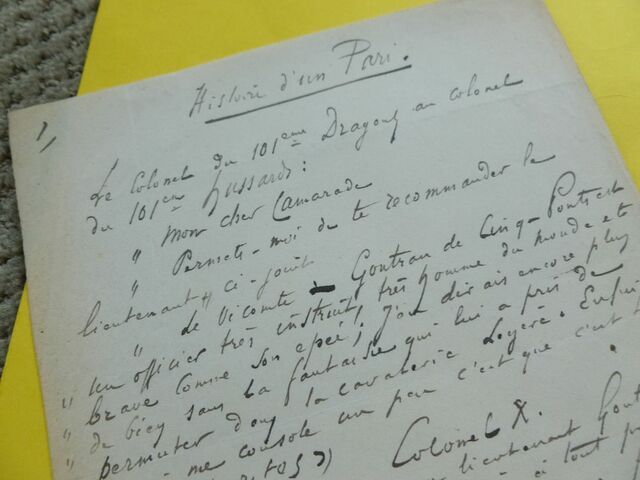 1)
Histoire d'un Pari.
Le Colonel du 101eme Dragons au colonel
du 101eme hussards:
" Mon cher Camarade
" Permets-moi de te recommander le
lieutenant ci-joint
" de Vicomte Gontran de Cinq-Ponts est
" un officier très instruit, très homme du monde et
" brave comme son épée; j'en dirais encore plus
" de bien sans la fantaisie qui lui a pris de
" permuter dans la cavalerie légère. Enfin
me console un peu c'est que c'est
Colonel X.
lieutenant
à tout